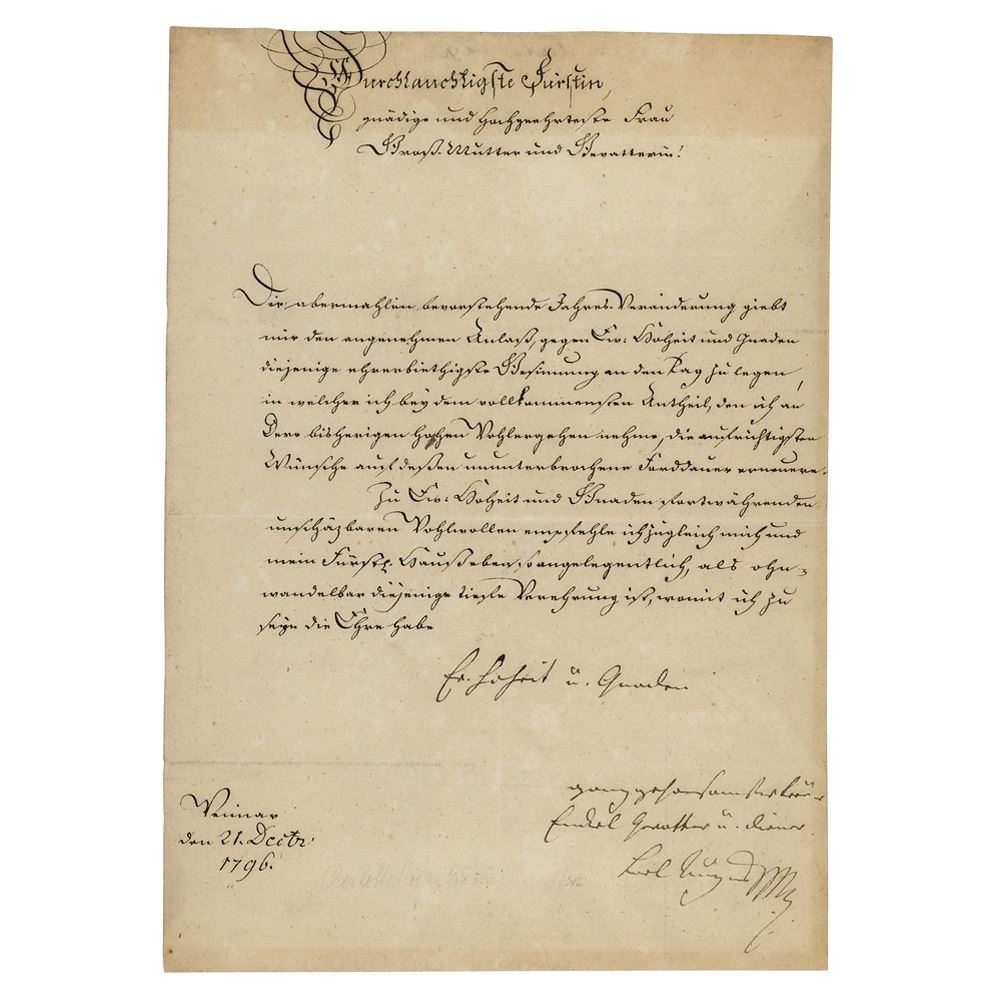 Durchlauchtigste Fürstin,
gnädige und Hochgeehrteste Frau
Groß-Mutter und Gevatterin!
Die abermahlen bevorstehende Jahres-Veränderung giebt
mir den angenehmen Anlaß, gegen Ew: Hoheit und Gnaden
diejenige ehrerbiethigste Gesinnung an den Tag zu legen,
in welcher ich bey dem vollkommensten Antheil, den ich an
Dero bisherigen hohen Wohlergehen nehme, die aufrichtigsten
Wünsche auf deßen ununterbrochene Fortdauer erneuere.
Zu Ew: Hoheit und Gnaden fortwährenden
unschäzbaren Wohlwollen empfehle ich zugleich mich und
mein Fürstl. Hauß eben so angelegentlich, als ohn-
wandelbar diejenige tiefste Verehrung ist, womit ich zu
seyn die Ehre habe
Ew. Hoheit u. Gnaden
ganz gehorsamster treuer
Enkel Gevatter u. diener
Carl August
Weimar
den 21. Decbr:
1796.